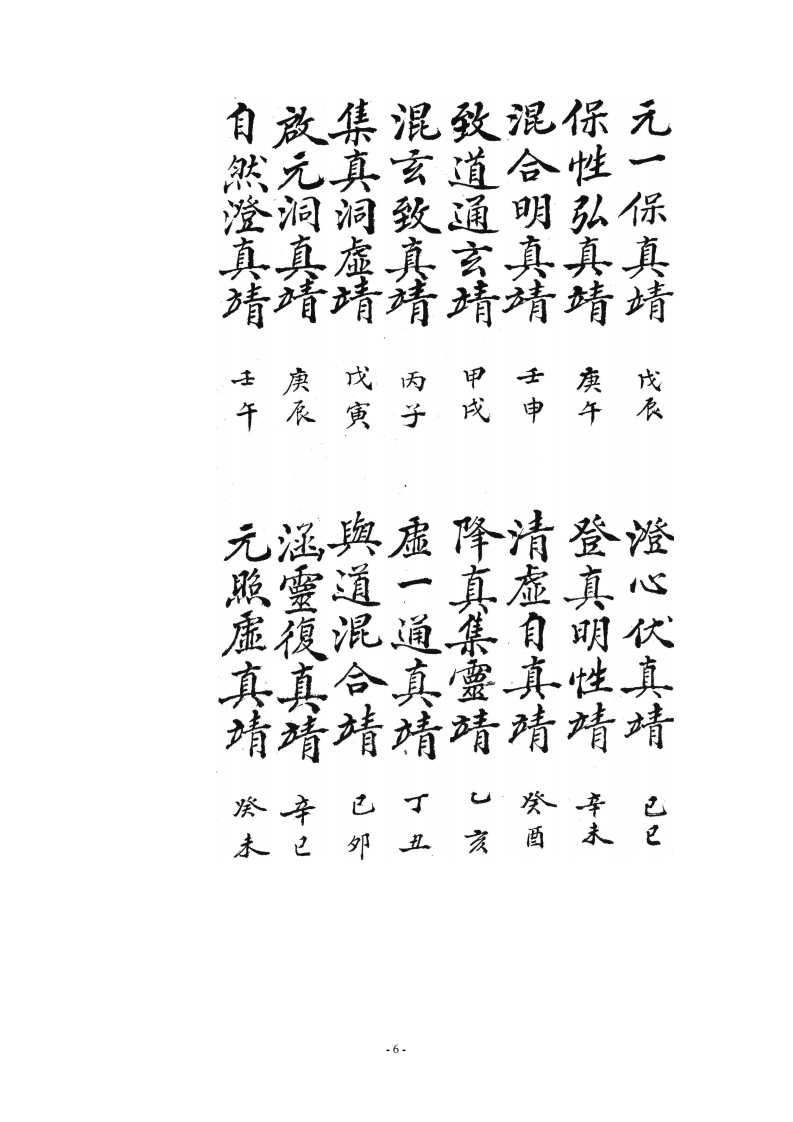 元一保真靖 戊辰
澄心伏真靖 己巳
保性弘真靖 庚午
登真明性靖 辛未
混合明真靖 壬申
清虛自真靖 癸酉
致道通玄靖 甲戌
降真集靈靖 乙亥
混玄致真靖 丙子
虛一通真靖 丁丑
集真洞虛靖 戊寅
與道混合靖 己卯
啟元洞真靖 庚辰
涵靈復真靖 辛巳
自然澄真靖 壬午
元照虛真靖 癸未
- 6 -